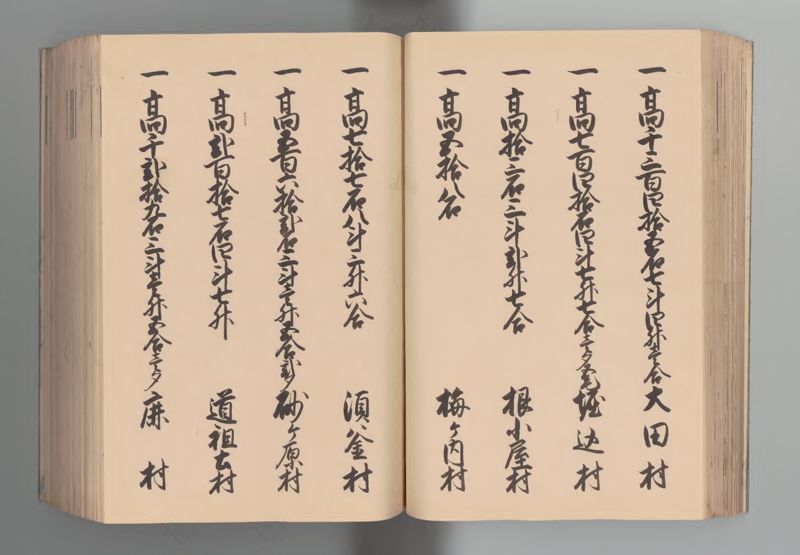 一高千三百四拾五石七斗四升壱合大田村
一高七百四拾石四斗七升七合三夕 堀込村
一高拾三石三斗弐升七合 根小屋村
一高五拾八石 梅ヶ内村
一高七拾七石八斗三升六合 須釜村
一高五百六拾弐石三斗壱升五合弐夕砂ヶ原村
一高弐百拾七石四斗七升 道祖土村
一高千弐拾九石三斗壱升五合三夕 麻村